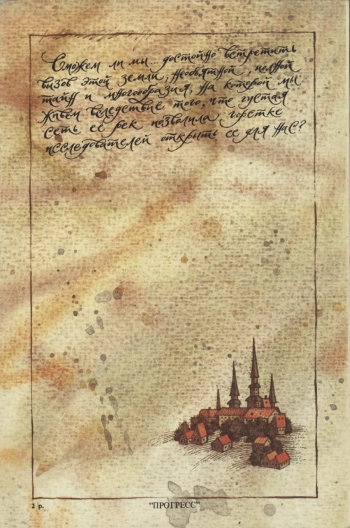 Сможем ли мы достойно встретить
вызов этой земли, необъятной, полной
тайн и многообразия, на которой мы
живем вследствие того, что густая
сеть ее рек позволила горстке
исследователей открыть ее для нас?
2 р.
"ПРОГРЕСС"